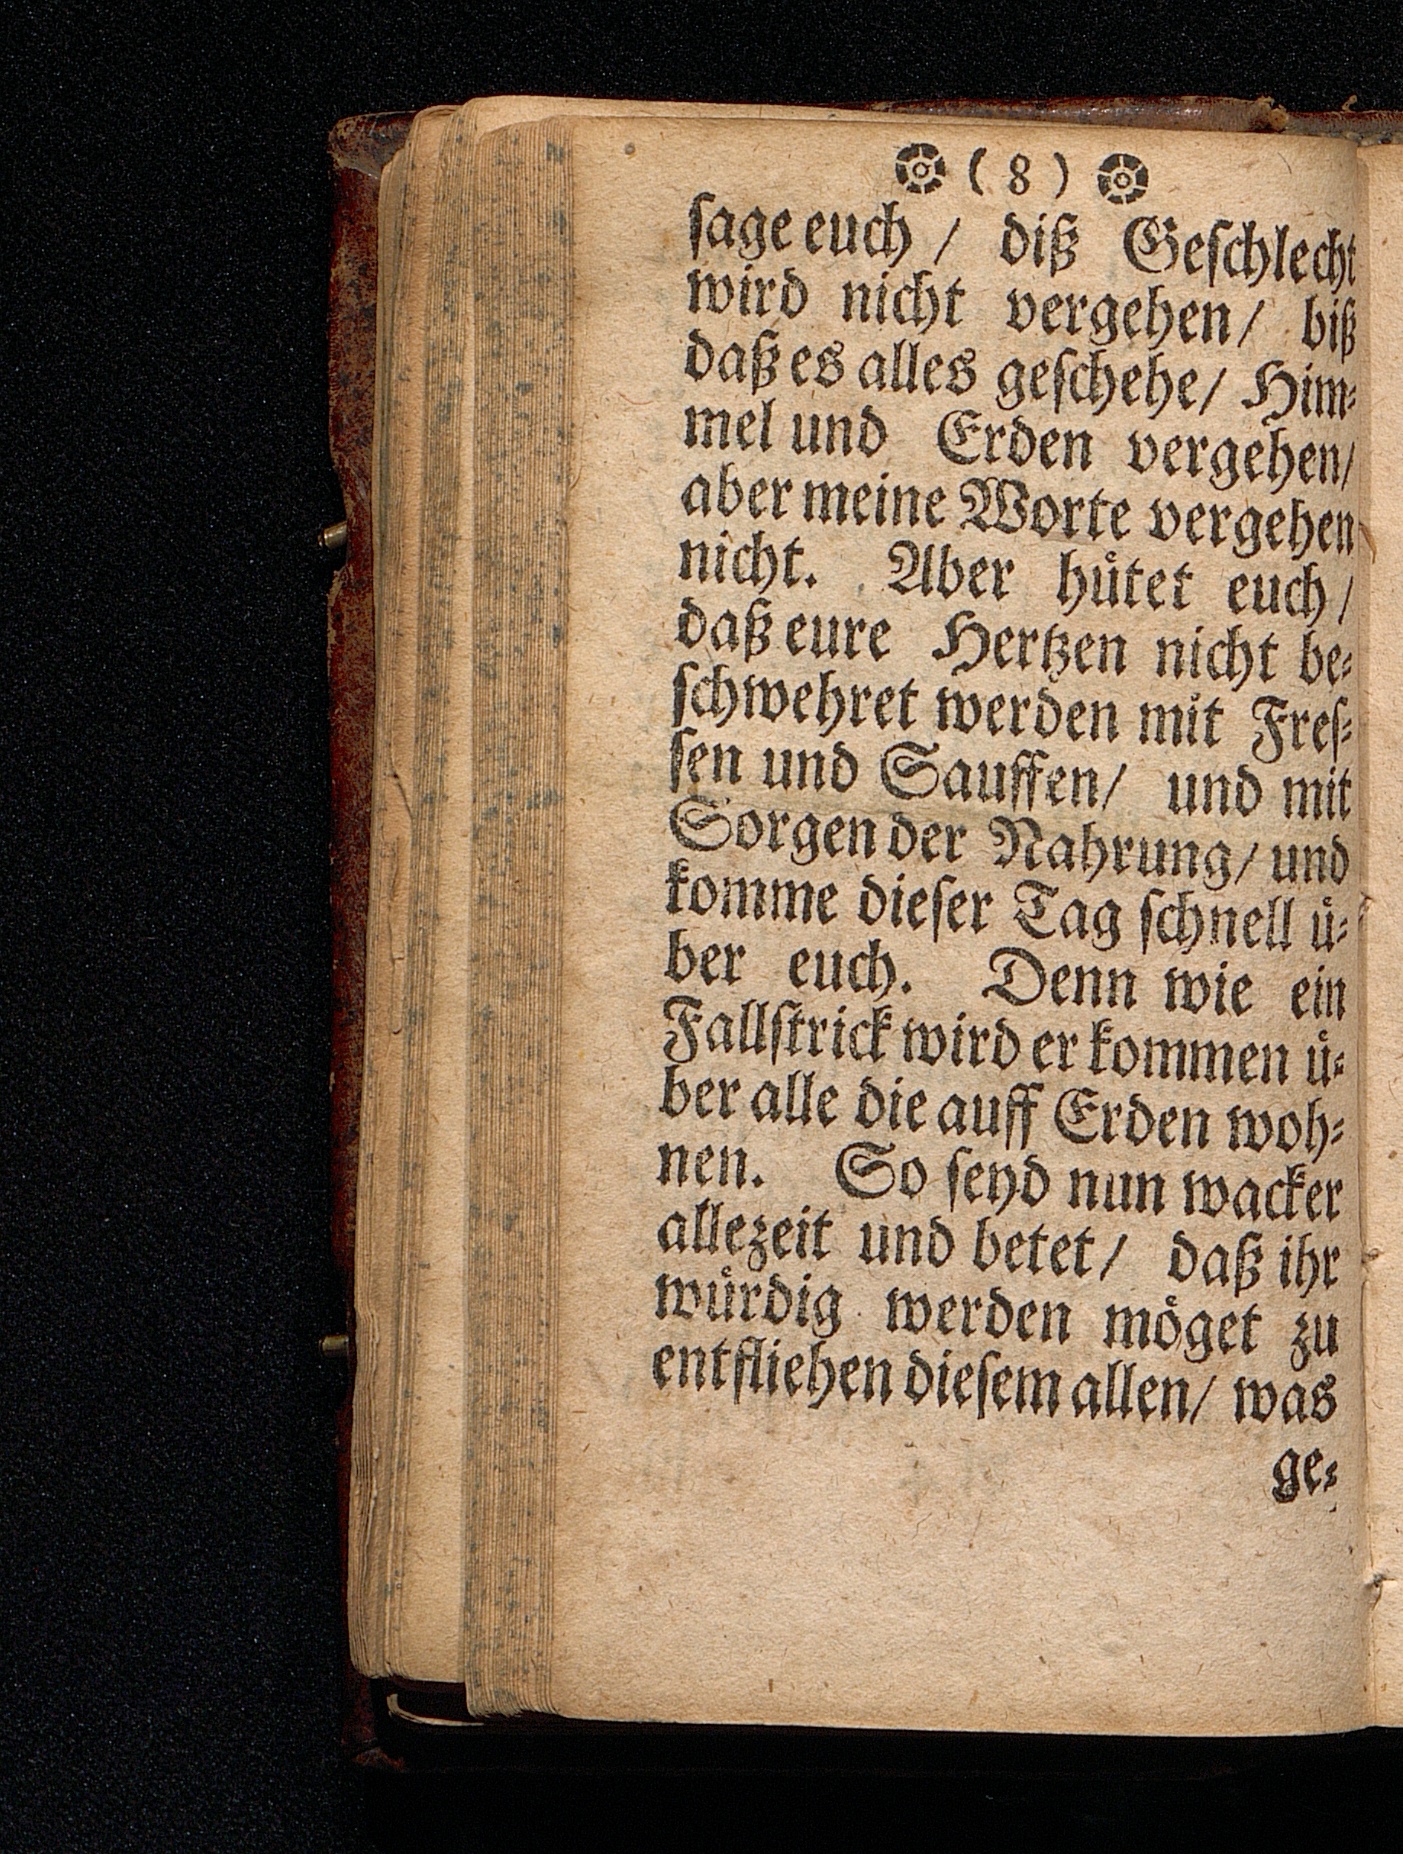 ( 8 )
ſage euch / diß Geſchlecht
wird nicht vergehen / biß
daß es alles geſchehe / Him⸗
mel und Erden vergehen /
aber meine Worte vergehen
nicht. Aber huͤtet euch /
daß eure Hertzen nicht be⸗
ſchwehret werden mit Freſ⸗
ſen und Sauffen / und mit
Sorgen der Nahrung / und
komme dieſer Tag ſchnell uͤ⸗
ber euch. Denn wie ein
Fallſtrick wird er kommen uͤ⸗
ber alle die auff Erden woh⸗
nen. So ſeyd nun wacker
allezeit und betet / daß ihr
wuͤrdig werden moͤget zu
entfliehen dieſem allen / was
ge⸗